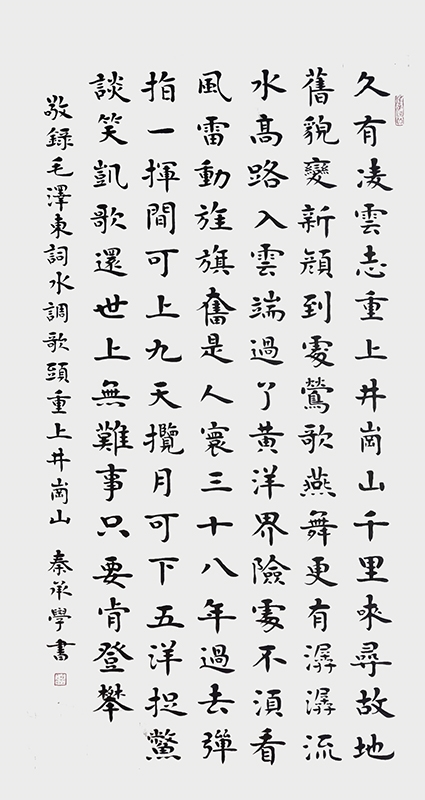 久有凌雲志重上井崗山千里來尋故地
舊貌變新顔到處鶯歌燕舞更有潺潺流
水高路入雲端過了黃洋界險處不須看
風雷動旌旗奮是人寰三十八年過去彈
指一揮間可上九天攬月可下五洋捉鱉
談笑凱歌還世上無難事只要肯登攀
敬録毛澤東詞水調歌頭重上井崗山 秦承學書